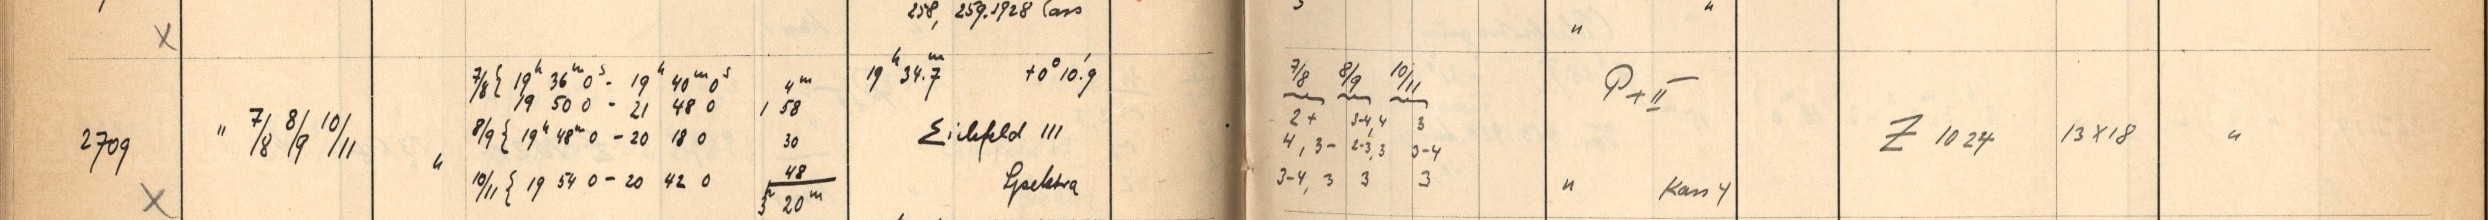 258, 259.1928 Cass
5 " "
X
2709 " 7/8 8/9 10/11 "
7/8 { 19h 36m 0s - 19h 40m 0s 4m
19 50 0 - 21 48 0 1 58
8/9 { 19h 48m 0 - 20 18 0 30
10/11 { 19 54 0 - 20 42 0 48
3h 20m
19h 34.m7 +0° 10.'9
Eichfeld III
Spektra
7/8 8/9 10/11
2+ 3-4, 4 3
4, 3- 2-3, 3 3-4
3-4, 3 3 3
P + II
" Kass 4
Z 1024 13X18 "
X